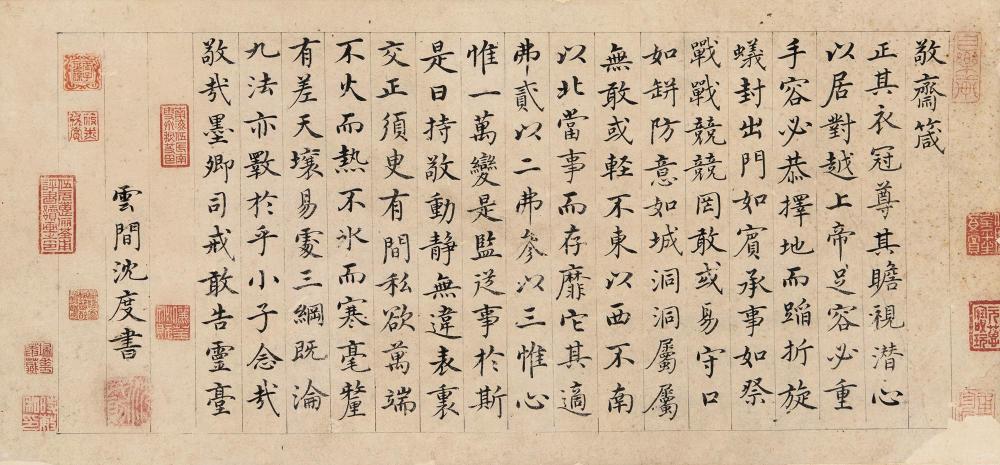 敬齋箴
正其衣冠尊其瞻視潛心
以居對越上帝足容必重
手容必恭擇地而蹈折旋
蟻封出門如賓承事如祭
戰戰兢兢罔敢或易守口
如缾防意如城洞洞屬屬
無敢或輕不東以西不南
以北當事而存靡它其適
弗貳以二弗參以三惟心
惟一萬變是監從事於斯
是曰持敬動靜無違表裏
交正須臾有間私欲萬端
不火而熱不氷而寒毫釐
有差天壤易處三綱既淪
九法亦斁於乎小子念哉
敬哉墨卿司戒敢告靈臺
雲間沈度書